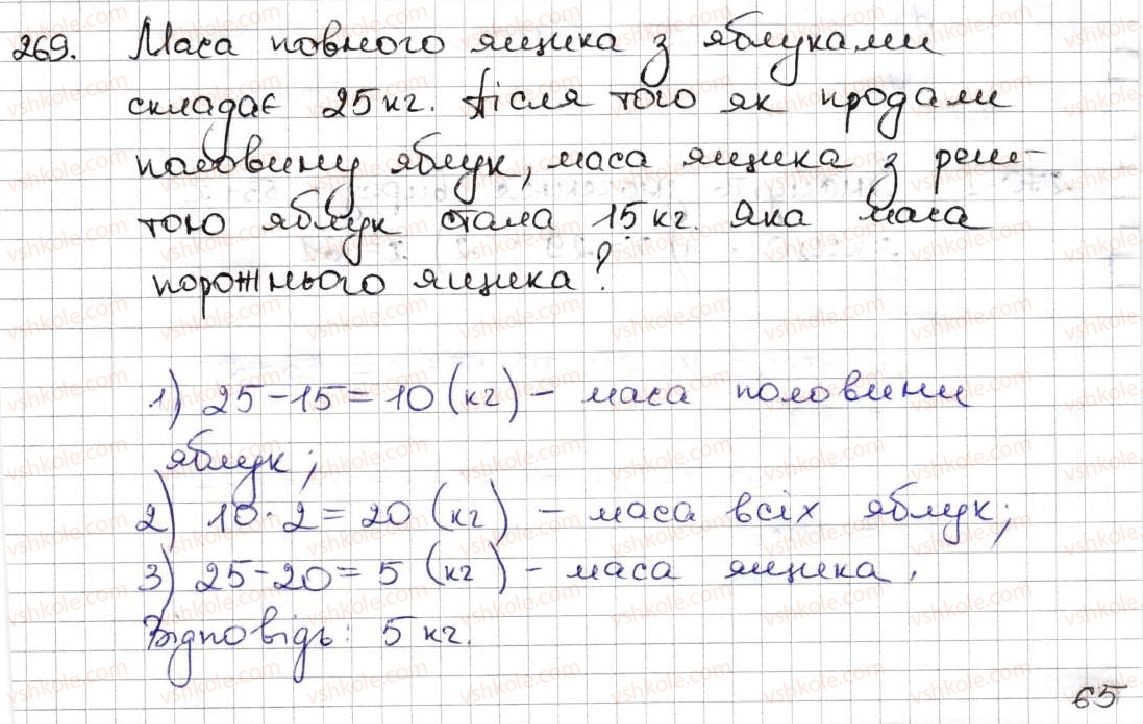 269. Маса повного ящика з яблуками
складає 25 кг. Після того як продали
половину яблук, маса ящика з реш-
тою яблук стала 15 кг. Яка маса
порожнього ящика?
1) 25 - 15 = 10 (кг) - маса половини
яблук;
2) 10 · 2 = 20 (кг) - маса всіх яблук;
3) 25 - 20 = 5 (кг) - маса ящика.
Відповідь: 5 кг.
65
vshkole.com